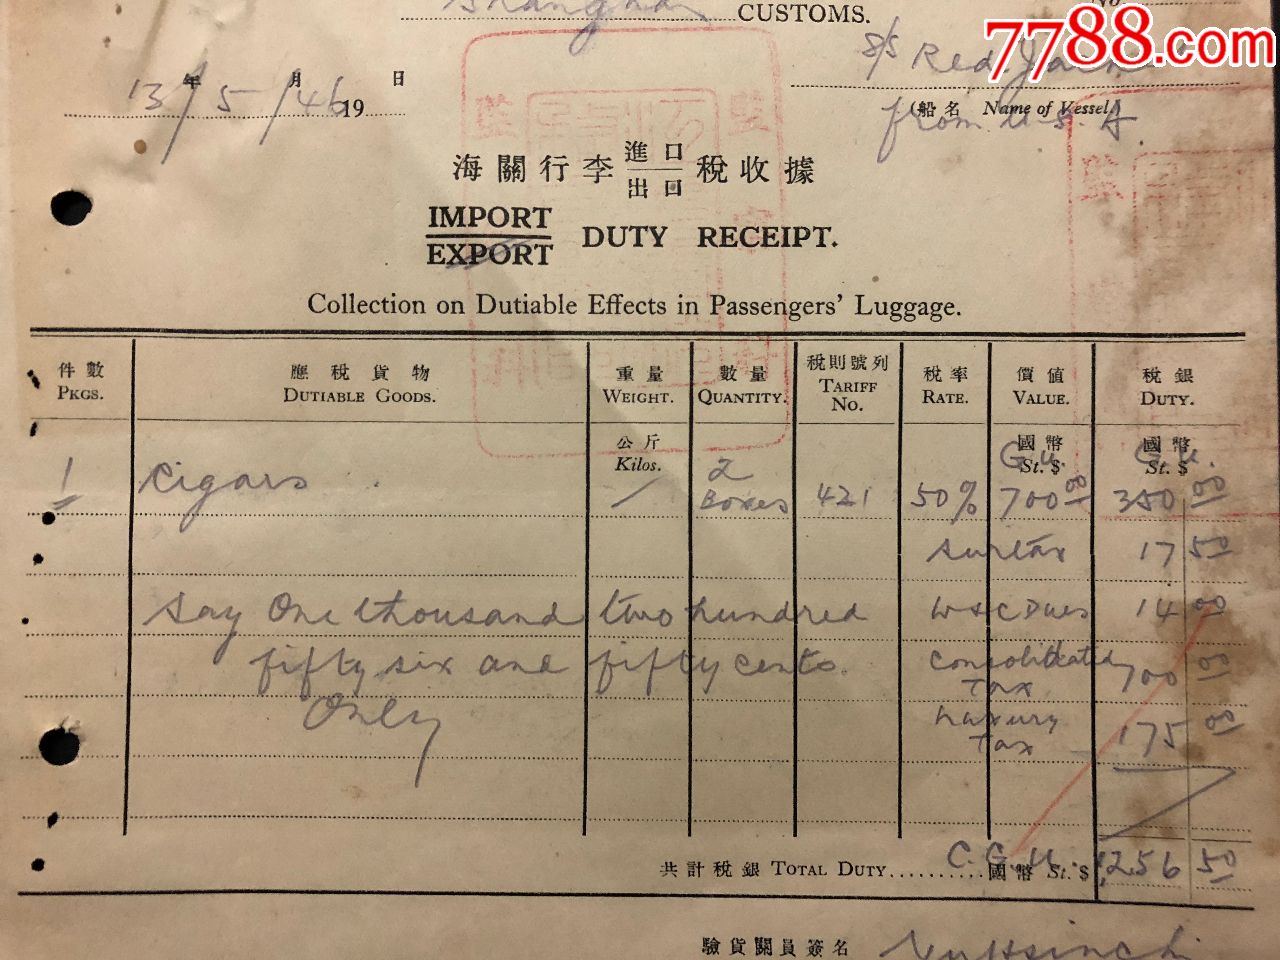 Shanghai CUSTOMS.
No.
7788.com
S/S Red Jack
13/5/46 年 月 19 日
(船名 Name of Vessel)
from U.S.A
海關行李 進口 出口 稅收據
IMPORT
EXPORT DUTY RECEIPT.
Collection on Dutiable Effects in Passengers' Luggage.
件數 應稅貨物 重量 數量 稅則號列 稅率 價值 稅銀
PKGS. DUTIABLE GOODS. WEIGHT. QUANTITY. TARIFF No. RATE. VALUE. DUTY.
公斤 Kilos. 國幣 G.U. St. $ 國幣 G.U. St. $
1 Cigars. / 2 Boxes 421 50% 700 00 350 00
Surtax 17 50
Say One thousand two hundred W & C Dues 14 00
fifty six and fifty cents. Consolidated Tax 700 00
Only Luxury Tax 175 00
共計稅銀 TOTAL DUTY.......... C.G.U. 國幣 St. $ 1,256 50
驗貨關員簽名